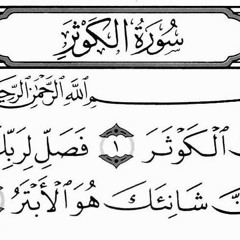 سُورَةُ الكَوْثَرِ
ـمِ اللَّهِ الرَّحْمَٰنِ الرَّحِيـ
الْكَوْثَرَ ١ فَصَلِّ لِرَبِّكَ
شَانِئَكَ هُوَ الْأَبْتَرُ